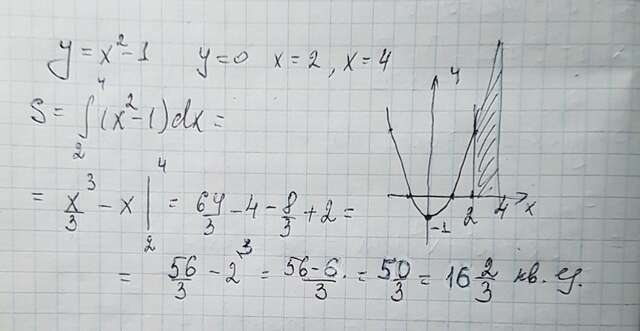 y = x² - 1   y = 0   x = 2, x = 4
S = ∫₂⁴ (x² - 1) dx =
= x³/3 - x |₂⁴ = 64/3 - 4 - 8/3 + 2 =
= 56/3 - 2³ = (56 - 6)/3 = 50/3 = 16 2/3 кв. ед.
y
-1 2 4 x